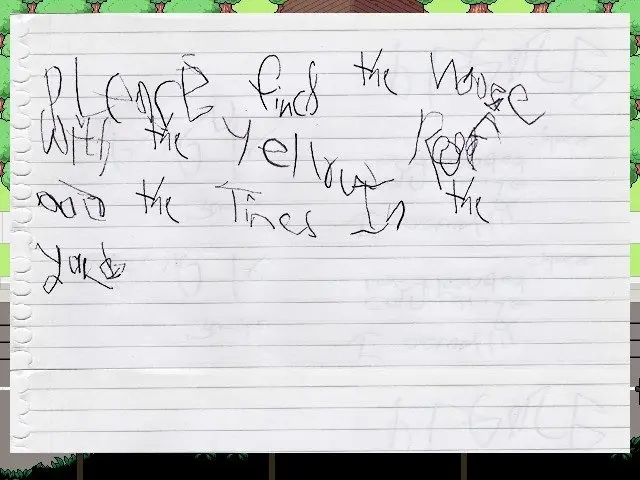 PLEASE find the house
With the Yellow Roof
and the Tires In the
yard